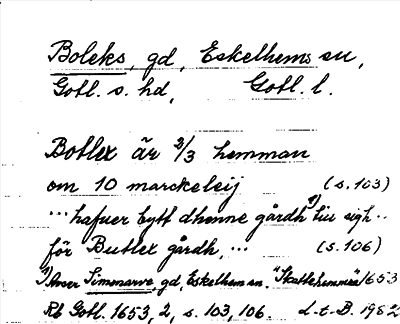 Boleks, gd, Eskelhems sn,
Gotl. s. hd, Gotl. l.
Botlex är 2/3 hemman
om 10 marckeleij (s. 103)
... hafuer bytt dhenne gårdh 1) till sigh ..
för Butlex gårdh, ... (s. 106)
1) Avser Simmarve, gd, Eskelhem sn. "Skattehemman" 1653
Rb Gotl. 1653, 2, s. 103, 106. L-t-B. 1982